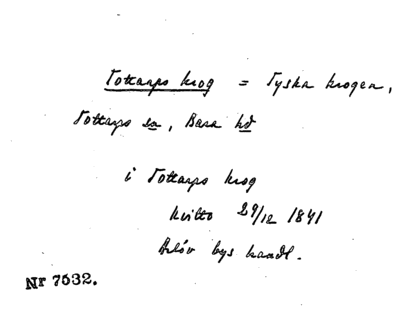 Tottarps krog = Tyska krogen,
Tottarps sn, Bara hd
i Tottarps krog
kvitto 29/12 1841
Arlöv bys handl.
Nr 7532.